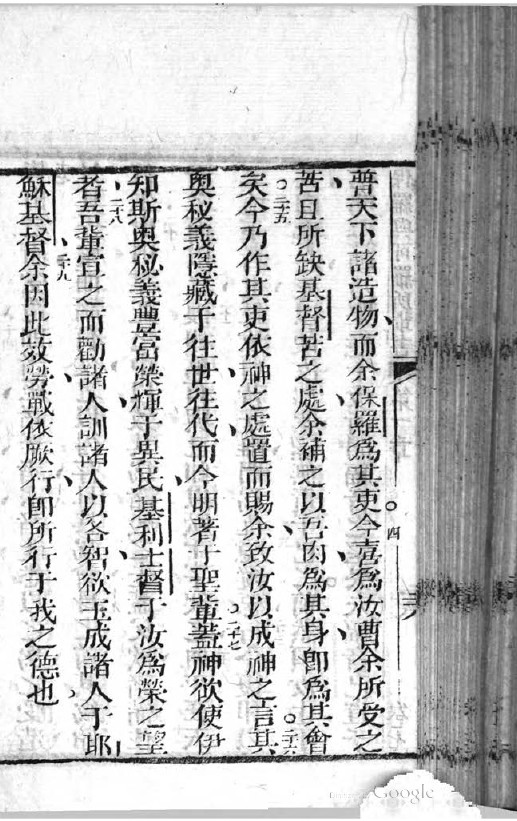 普天下諸造物而余保羅爲其吏今喜爲汝曹余所受之
苦且所缺基督苦之處余補之以吾肉爲其身卽爲其會
矣今乃作其吏依神之處置而賜余致汝以成神之言其
奧秘義隱藏于往世往代而今明著于聖輩蓋神欲使伊
知斯奧秘義豐富榮輝于異民基利士督于汝爲榮之望
者吾輩宣之而勸諸人訓諸人以各智欲玉成諸人于耶
穌基督余因此效勞戰依厥行卽所行于我之德也
Google